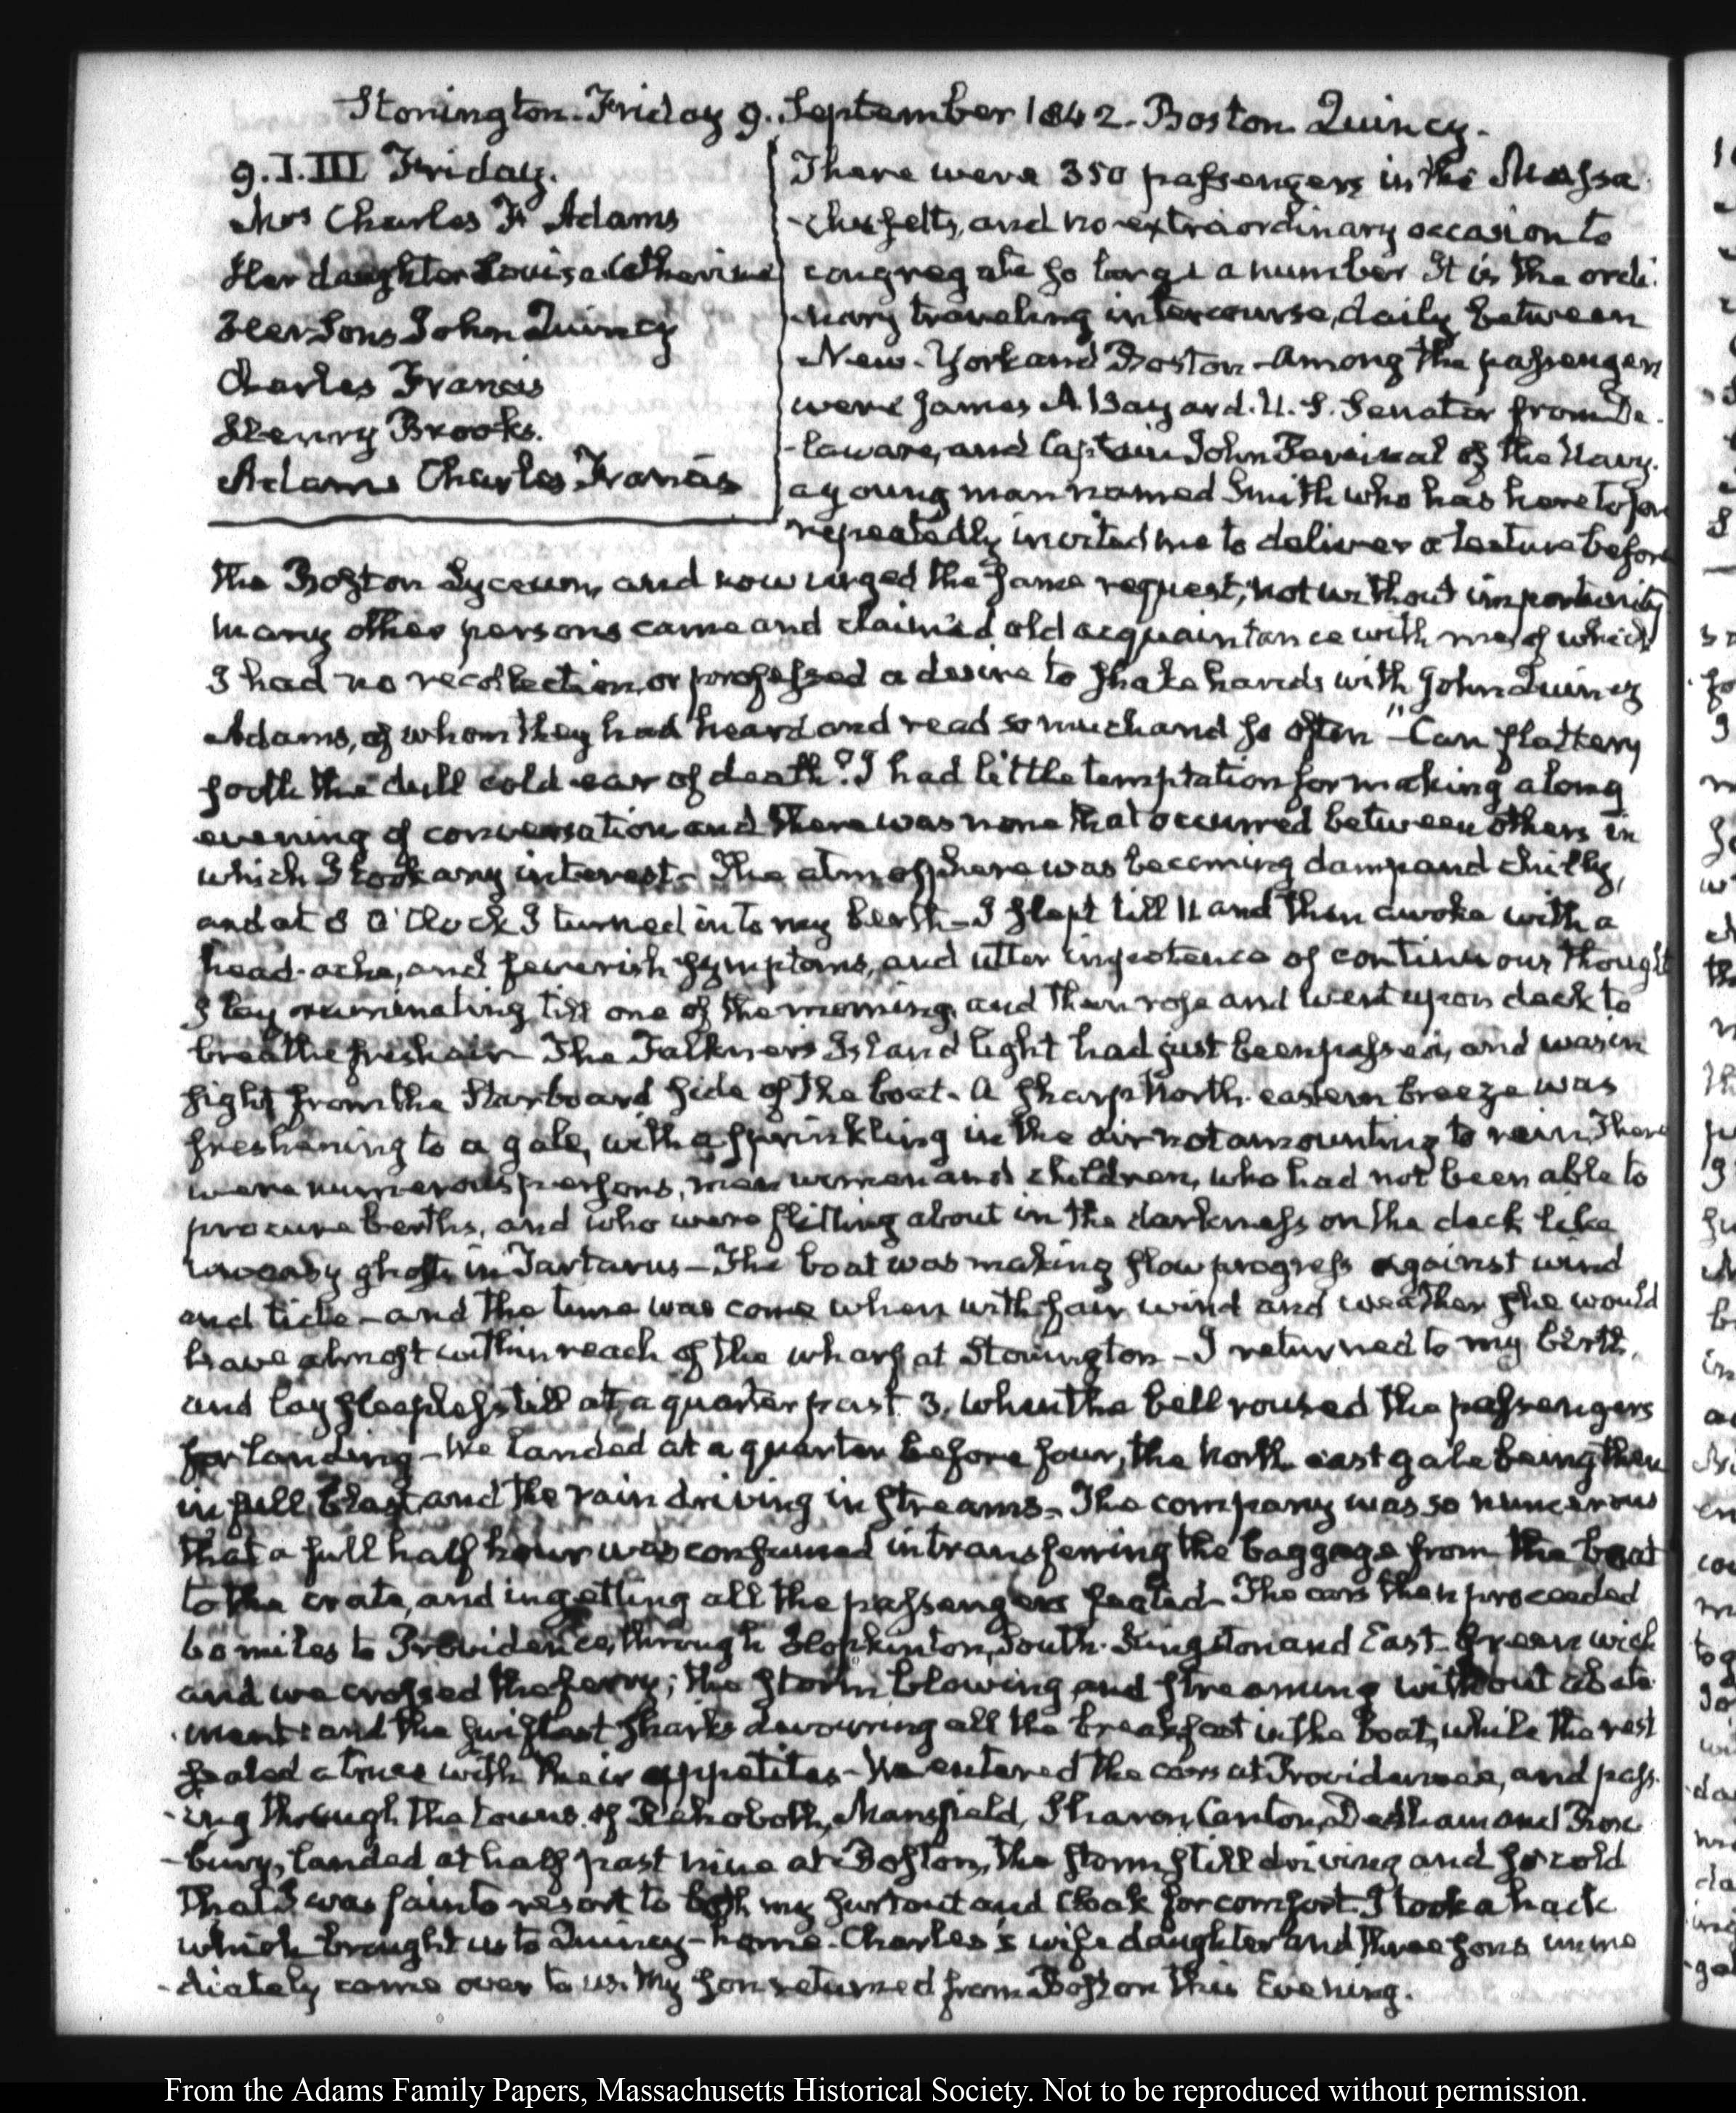 Stonington. Friday 9. September 1842. Boston Quincy.
9. I. III Friday.
Mrs Charles F. Adams
Her daughter Louisa Catherine
Her Sons John Quincy
Charles Francis
Henry Brooks.
Adams Charles Francis
There were 350 passengers in the Massa
-chusetts, and no extraordinary occasion to
congregate so large a number It is the ordi-
nary traveling intercourse, daily between
New-York and Boston - Among the passengers
were James A. Bayard. U. S. Senator from De-
-laware, and Captain John Percival of the Navy.
a young man named Smith who has heretofore
repeatedly invited me to deliver a lecture before
the Boston Lyceum, and now urged the same request, not without importunity
many other persons came and claimed old acquaintance with me, of which
I had no recollection, or professed a desire to shake hands with John Quincy
Adams, of whom they had heard and read so much and so often "Can flattery
sooth the dull cold ear of death? I had little temptation for making a long
evening of conversation and there was none that occurred between others in
which I took any interest - The atmosphere was becoming damp and chilly,
and at 8 O'Clock I turned in to my berth - I slept till 11 and then awoke with a
head-ache, and feverish symptoms, and utter impotence of continuous thought
I lay ruminating till one of the morning, and then rose and went upon deck to
breathe fresh air - The Falkner's Island light had just been passed, and was in
sight from the Starboard side of the boat - A sharp North-eastern breeze was
freshening to a gale, with a sprinkling in the air not amounting to rain, There
were numerous persons, men women and children, who had not been able to
procure berths, and who were flitting about in the darkness on the deck like
uneasy ghosts in Tartarus - The boat was making slow progress against wind
and tide - and the time was come when with fair wind and weather she would
have almost within reach of the wharf at Stonington - I returned to my birth,
and lay sleepless till at a quarter past 3, when the bell roused the passengers
for landing - We landed at a quarter before four, the North east gale being then
in full blast and the rain driving in streams - The company was so numerous
that a full half hour was consumed in transferring the baggage from the boat
to the crate, and in getting all the passengers seated - The cars then proceeded
60 miles to Providence, through Hopkinton, South-Kingston and East-Greenwich
and we crossed the ferry; the storm blowing and streaming without abate-
ment: and the swiftest sharks devouring all the breakfast in the boat, while the rest
sealed a truce with their appetites - We entered the cars at Providence, and pass-
-ing through the towns of Rehoboth, Mansfield, Sharon, Canton, Dedham and Rox-
-bury, landed at half past nine at Boston, the storm still driving and so cold
that I was fain to resort to both my surtout and Cloak for comfort. I took a hack
which brought us to Quincy - home. Charles's wife daughter and three sons imme
-diately came over to us. My son returned from Boston this Evening.
From the Adams Family Papers, Massachusetts Historical Society. Not to be reproduced without permission.